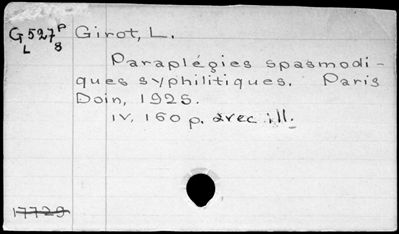 G 527 P Girot, L.
L 8
Paraplégies spasmodi-
ques syphilitiques. Paris
Doin, 1925.
IV. 160 p. avec ill.
17729